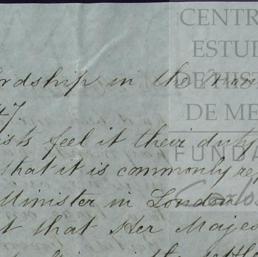 CENTR
ESTU
DE HIS
DE ME
FUNDA
rdship in the
47
ists feel it their duty
that it is commonly re
Minister in London
t that Her Majes